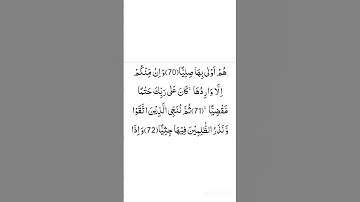 هُمْ اَوْلٰى بِهَا صِلِيًّا(70)وَاِنْ مِّنْكُمْ
اِلَّا وَارِدُهَا ۚ كَانَ عَلٰى رَبِّكَ حَتْمًا
مَّقْضِيًّا ۚ(71)ثُمَّ نُنَجِّى الَّذِيْنَ اتَّقَوْا
وَّنَذَرُ الظّٰلِمِيْنَ فِيْهَا جِثِيًّا(72)وَاِذَا